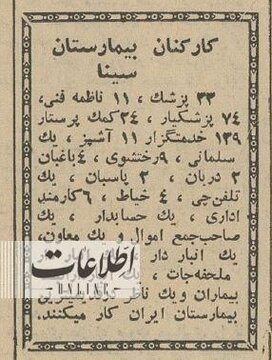 کارکنان بیمارستان
سینا
۳۳ پزشك ، ۱۱ ناظمه فنی،
۷۴ پزشکیار ، ۲٤ کمك پرستار
۱۳۹ خدمتگزار ۱۱ آشپز ، یك
سلمانی ، ۹ رختشوی ، ٤ باغبان
۲ دربان ، ۲ پاسبان ، یك
تلفن‌چی ، ٤ خیاط ، ۶ کارمند
اداری ، یك حسابدار ، یك
صاحب‌جمع اموال و یك معاون،
یك انبار دار
ملحفه‌جات ، یك
بیماران و یك ناظر
بیمارستان ایران کار میکنند.
اطلاعات
ONLINE